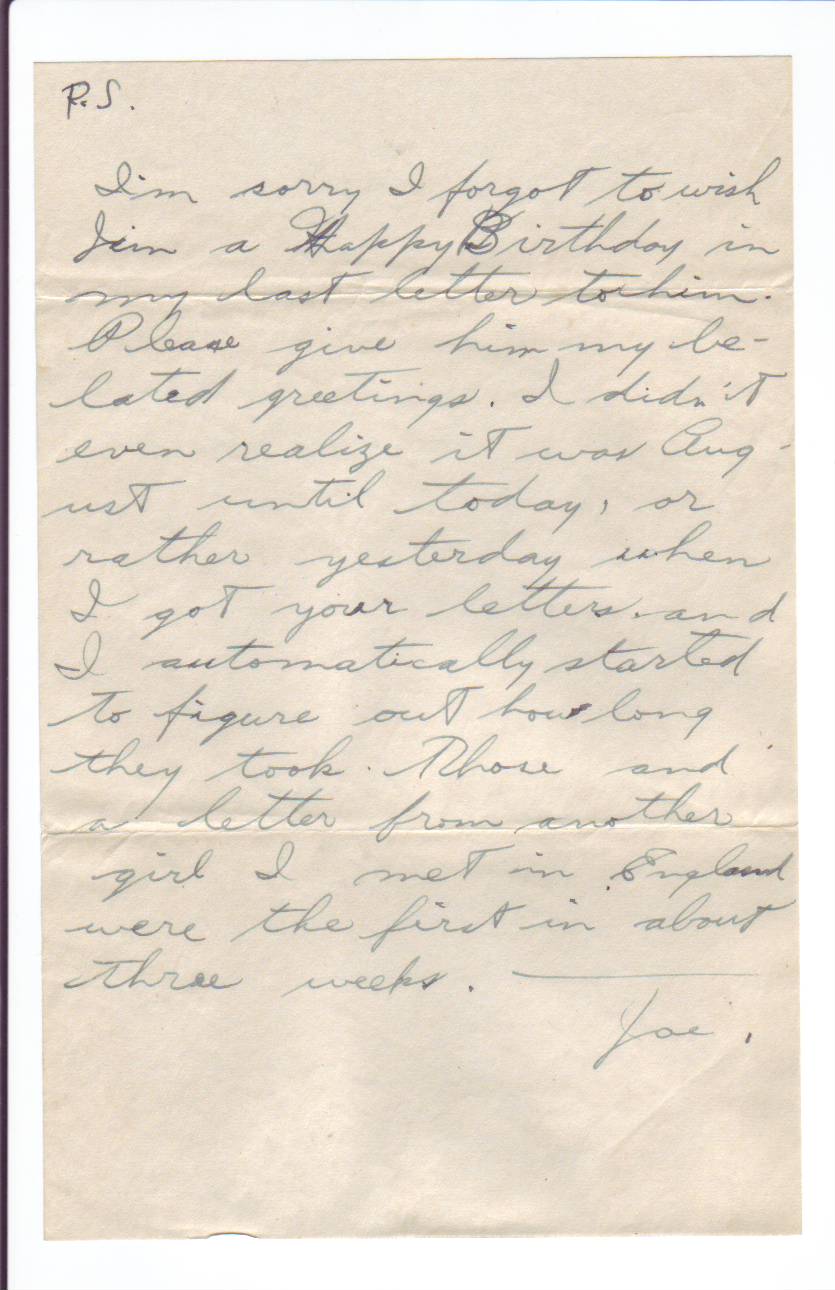 P.S.
I'm sorry I forgot to wish
Jim a Happy Birthday in
my last letter to him.
Please give him my be-
lated greetings. I didn't
even realize it was Aug-
ust until today, or
rather yesterday when
I got your letters. and
I automatically started
to figure out how long
they took. Those and
a letter from another
girl I met in England
were the first in about
three weeks. —
Joe.